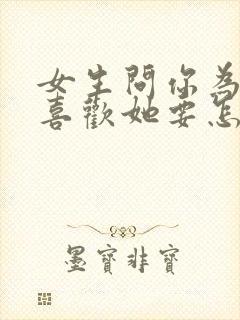 女生問你為
喜歡她要怎
墨寶非寶